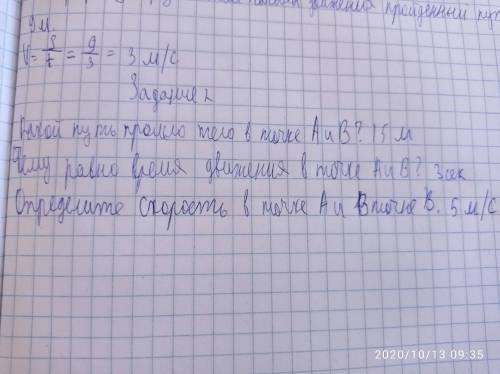 движения пройденный пу
9м.
V = S/t = 9/3 = 3 м/с
Задание 2
Какой путь прошло тело в точке А и В? 15 м
Чему равно время движения в точке А и В? 3 сек
Определите скорость в точке А и В точке В. 5 м/с
2020/10/13 09:35